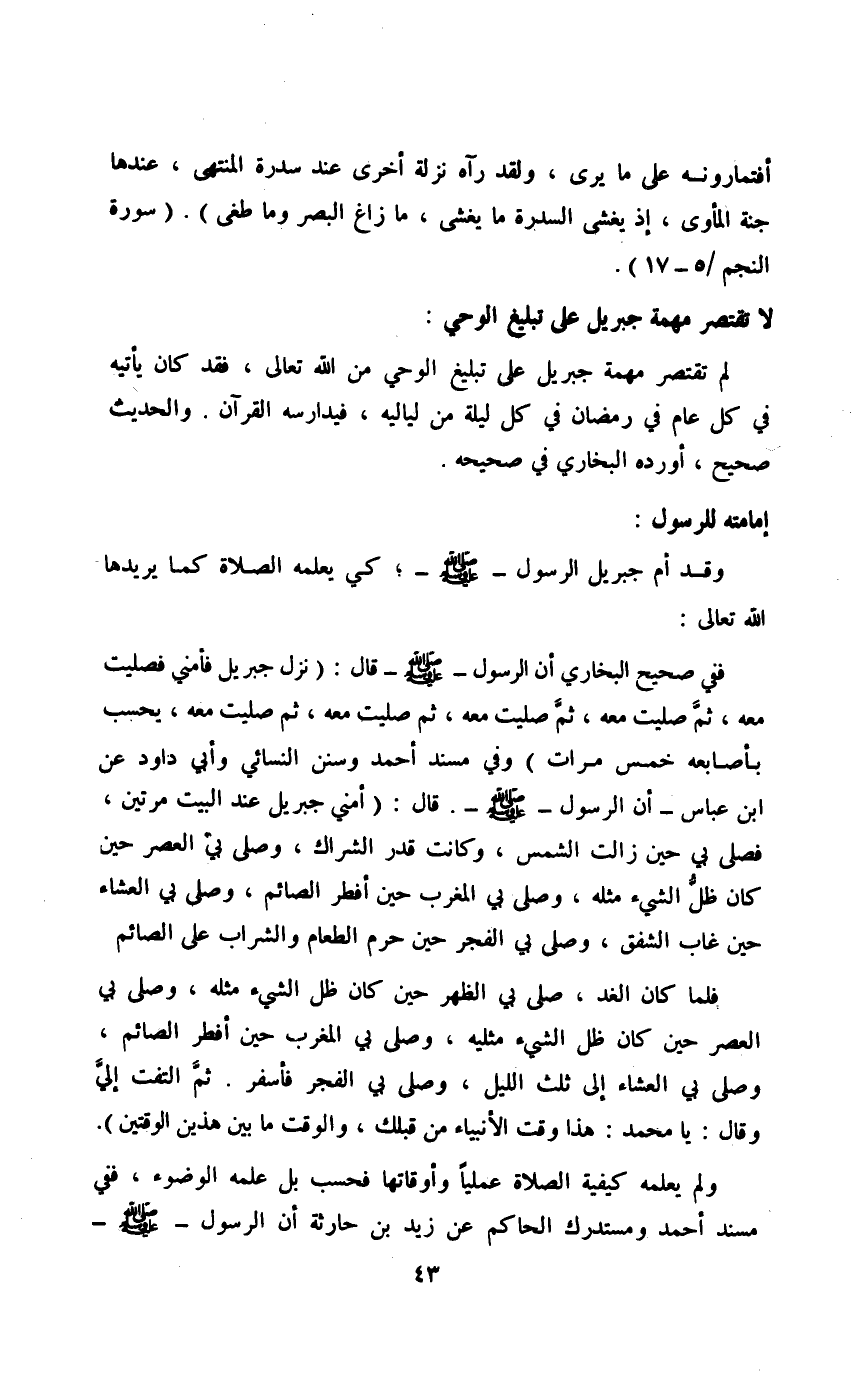 أفتمارونه على ما يرى ، ولقد رآه نزلة أخرى عند سدرة المنتهى ، عندها
جنة المأوى ، إذ يغشى السدرة ما يغشى ، ما زاغ البصر وما طغى ) . ( سورة
النجم /٥ – ١٧ ) .
لا تقتصر مهمة جبريل على تبليغ الوحي :
لم تقتصر مهمة جبريل على تبليغ الوحي من الله تعالى ، فقد كان يأتيه
في كل عام في رمضان في كل ليلة من لياليه ، فيدارسه القرآن . والحديث
صحيح ، أورده البخاري في صحيحه .
إمامته للرسول :
وقد أم جبريل الرسول – ﷺ – ؛ كي يعلمه الصلاة كما يريدها
الله تعالى :
ففي صحيح البخاري أن الرسول – ﷺ – قال : ( نزل جبريل فأمني فصليت
معه ، ثمَّ صليت معه ، ثمَّ صليت معه ، ثم صليت معه ، ثم صليت معه ، يحسب
بأصابعه خمس مرات ) وفي مسند أحمد وسنن النسائي وأبي داود عن
ابن عباس – أن الرسول – ﷺ – . قال : ( أمني جبريل عند البيت مرتين ،
فصلى بي حين زالت الشمس ، وكانت قدر الشراك ، وصلى بي العصر حين
كان ظلُّ الشيء مثله ، وصلى بي المغرب حين أفطر الصائم ، وصلى بي العشاء
حين غاب الشفق ، وصلى بي الفجر حين حرم الطعام والشراب على الصائم
فلما كان الغد ، صلى بي الظهر حين كان ظل الشيء مثله ، وصلى بي
العصر حين كان ظل الشيء مثليه ، وصلى بي المغرب حين أفطر الصائم ،
وصلى بي العشاء إلى ثلث الليل ، وصلى بي الفجر فأسفر . ثمَّ التفت إليَّ
وقال : يا محمد : هذا وقت الأنبياء من قبلك ، والوقت ما بين هذين الوقتين ).
ولم يعلمه كيفية الصلاة عملياً وأوقاتها فحسب بل علمه الوضوء ، ففي
مسند أحمد ومستدرك الحاكم عن زيد بن حارثة أن الرسول – ﷺ –
٤٣